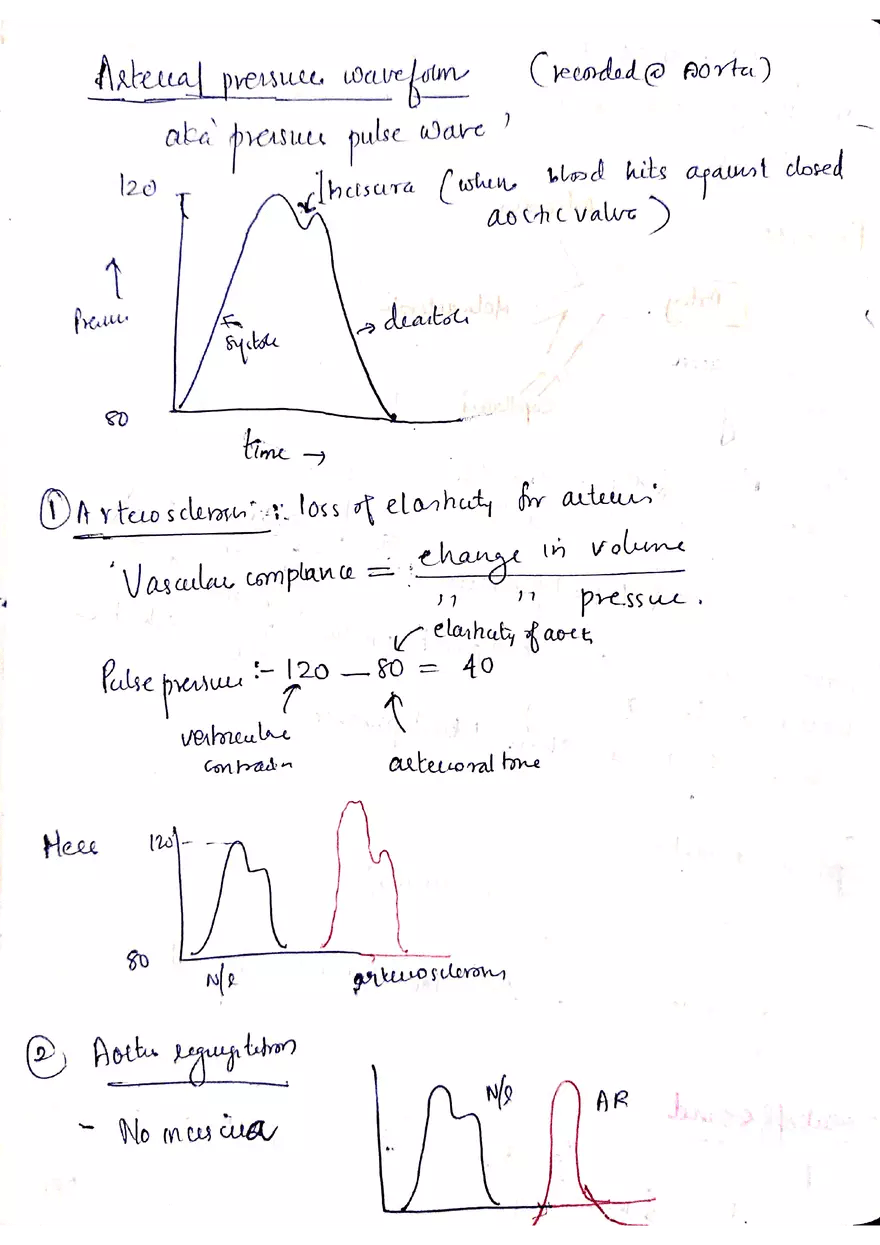 Arterial pressure waveform (recorded @ Aorta)
aka 'pressure pulse wave'
120
Incisura (when blood hits against closed
aortic valve)
↑
Pressure
← systole
→ diastole
80
time →
① Arteriosclerosis :- loss of elasticity for arteries
'Vascular complance = change in volume
" " pressure.
elasticity of aorta
Pulse pressure :- 120 – 80 = 40
ventricular
contraction
arterioral tone
Here
120
80
N/l
arteriosclerosis
② Aortic regurgitation
- No incisura
N/l
AR